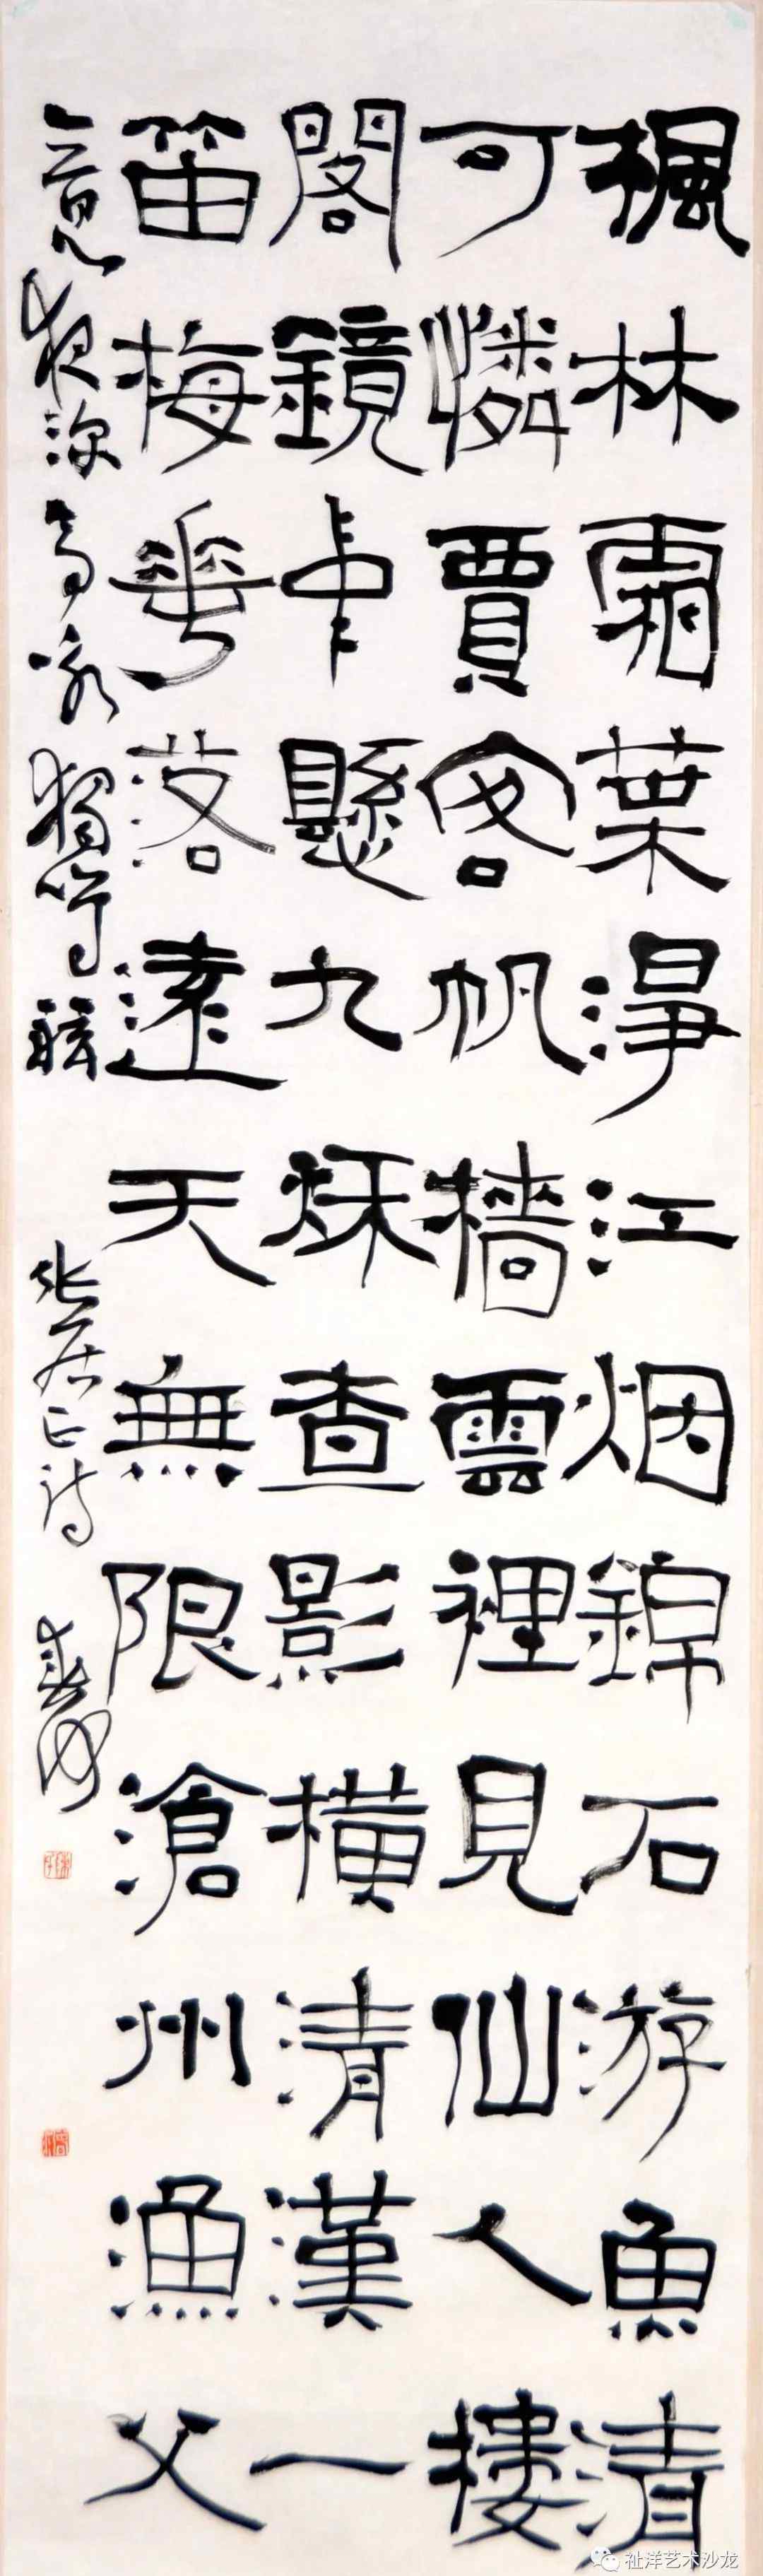 楓林霜葉淨江烟錦石游魚清
可憐賈客帆檣雲裡見仙人樓
閣鏡中懸九秋查影橫清漢一
笛梅華落遠天無限滄州漁父
意夜深高詠獨鳴舷
張居正詩
祉洋艺术沙龙